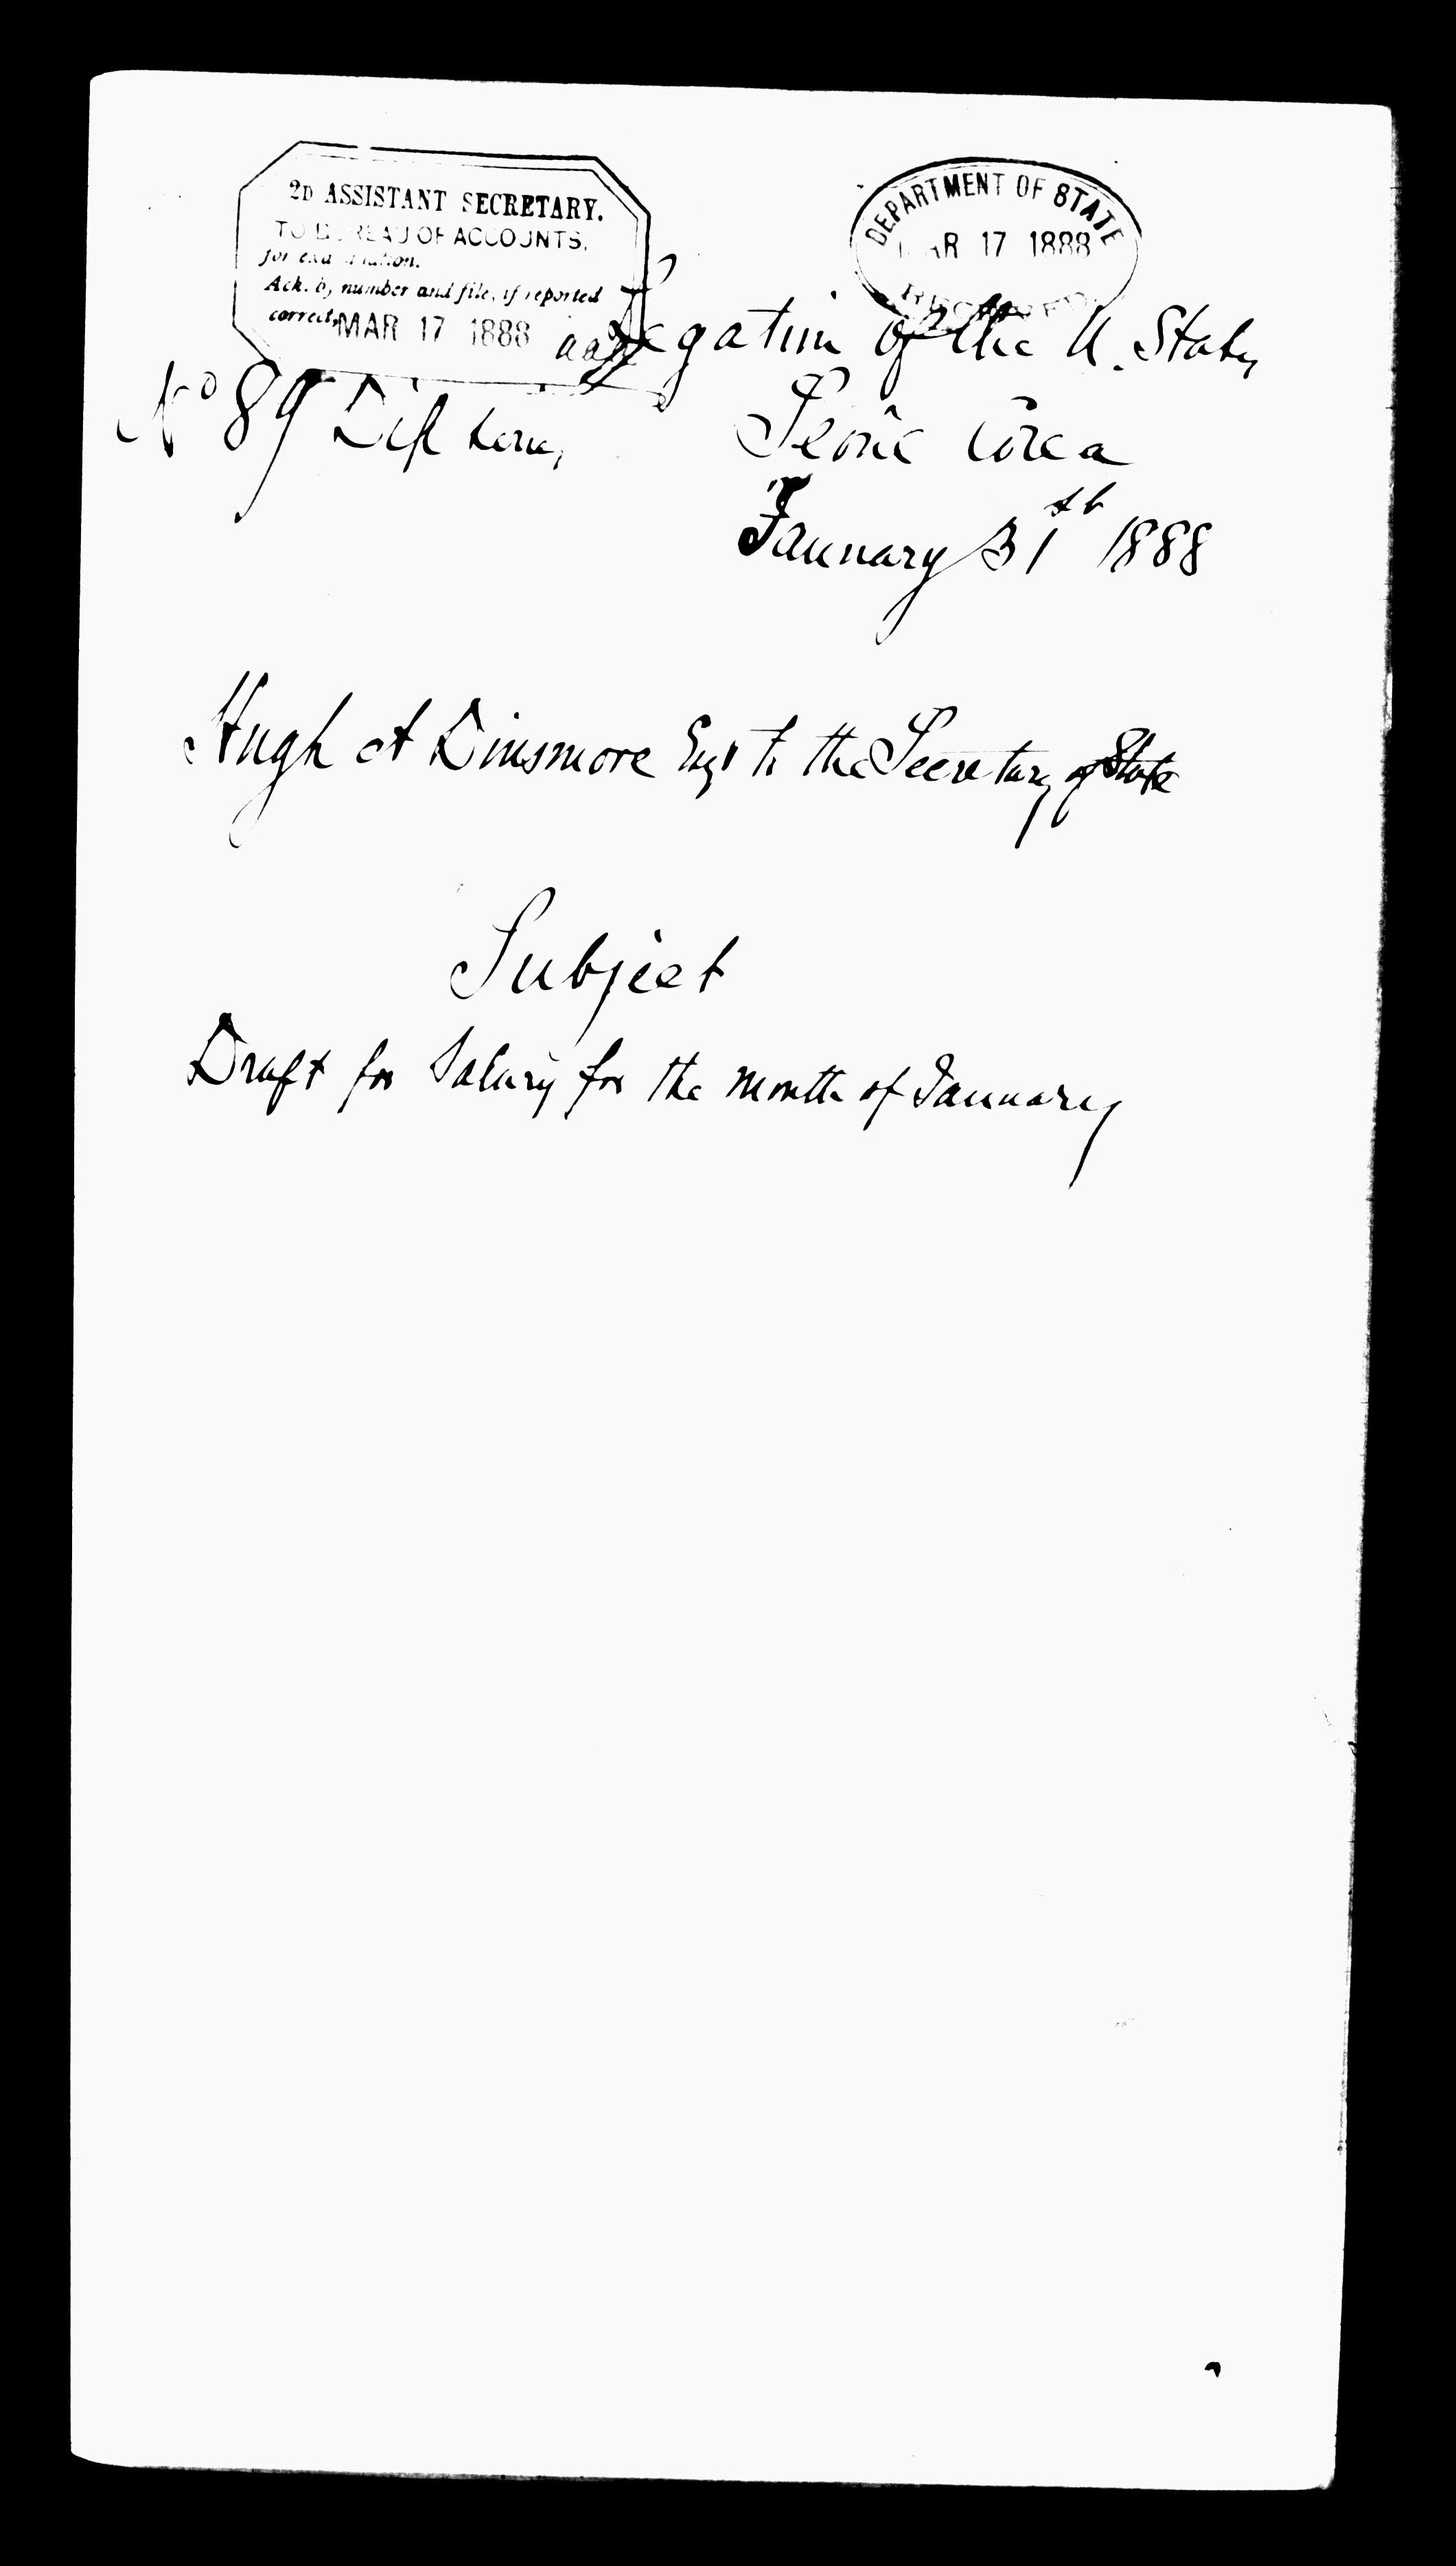 2D ASSISTANT SECRETARY.
TO BUREAU OF ACCOUNTS,
for examination.
Ack. by number and file, if reported
correct.
MAR 17 1888
DEPARTMENT OF STATE
MAR 17 1888
RECEIVED
Legation of the U. States
No 89 Dip Series,
Seoul Corea
January 31st 1888
Hugh A Dinsmore Esqr to the Secretary of State
Subject
Draft for Salary for the month of January